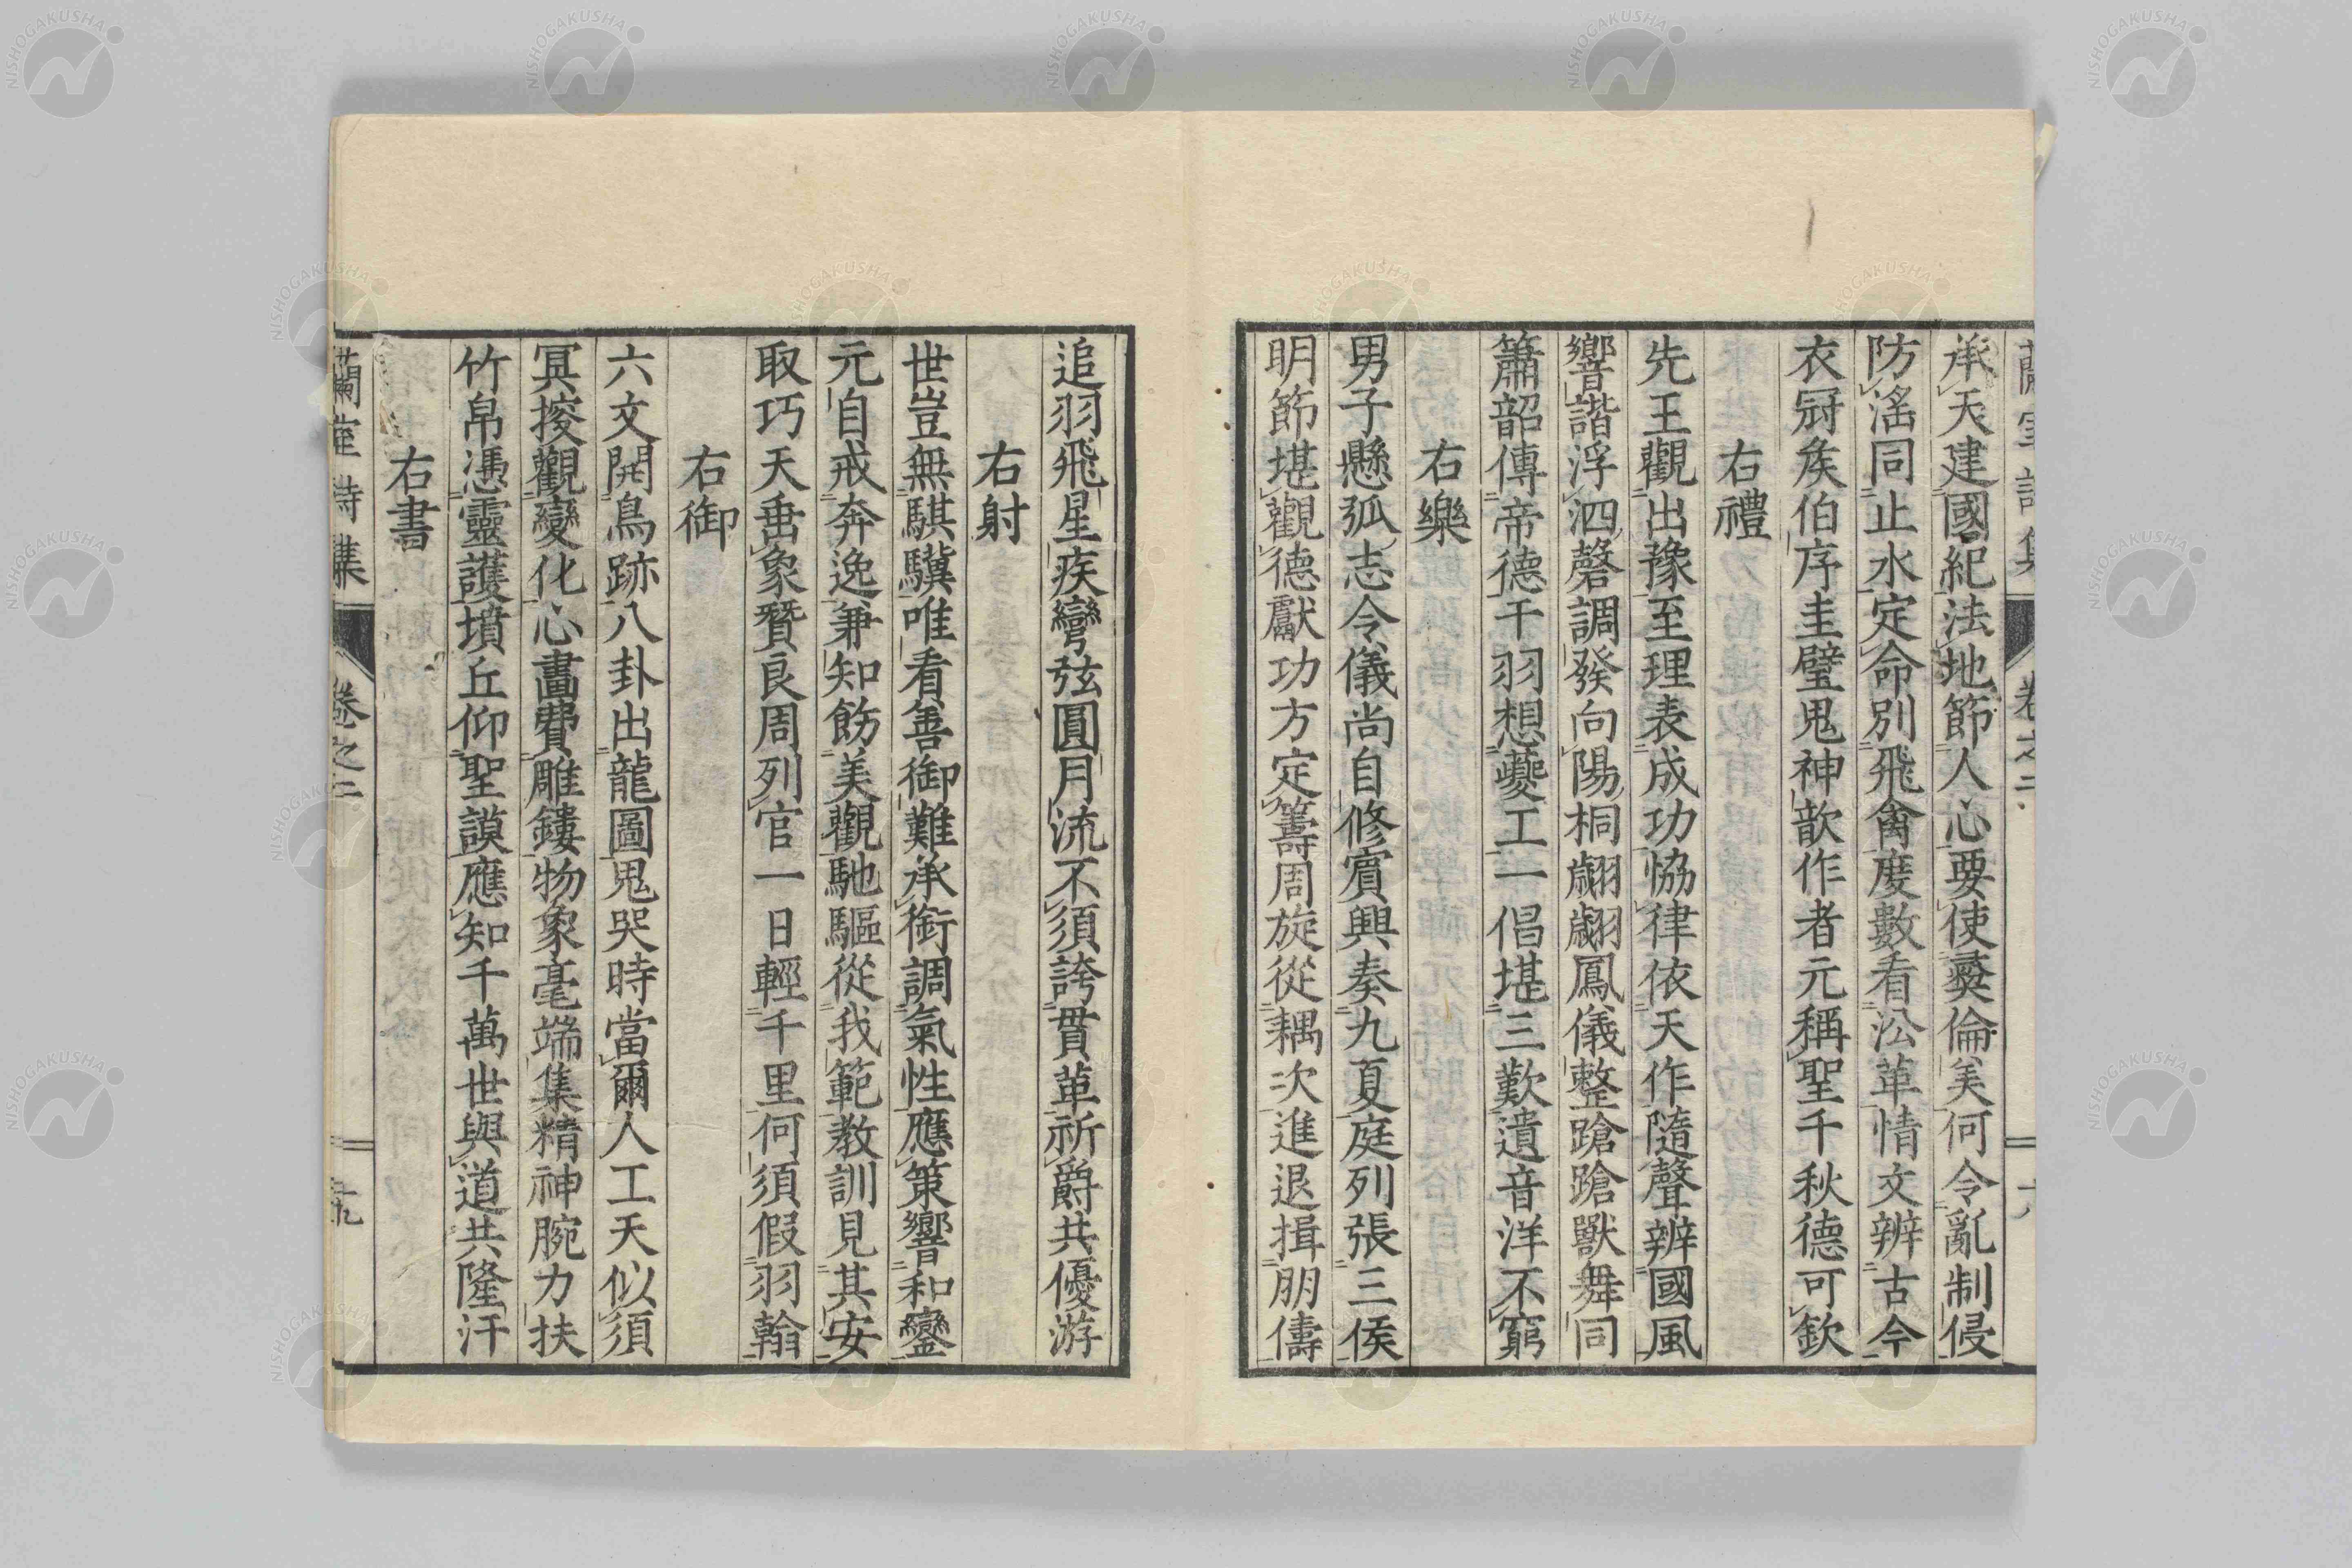 承天建國紀法地節人心要使彜倫美何令亂制侵
防滛同止水定命別飛禽度數看㳂革情文辨古今
衣冠矦伯序圭璧鬼神歆作者元稱聖千秋德可欽
右禮
先王觀出豫至理表成功恊律依天作隨聲辨國風
響諧浮泗磬調發向陽桐翽翽鳳儀整蹌蹌獸舞同
簫韶傳帝德干羽想夔工一倡堪三歎遺音洋不窮
右樂
男子懸弧志令儀尚自修賓興奏九夏庭列張三侯
明節堪觀德獻功方定籌周旋從耦次進退揖朋儔
追羽飛星疾彎弦圓月流不須誇貫革祈爵共優游
右射
世豈無騏驥唯看善御難承銜調氣性應策響和鑾
元自戒奔逸兼知飭美觀馳驅從我範教訓見其安
取巧天垂象贒良周列官一日輕千里何須假羽翰
右御
六文開鳥跡八卦出龍圖鬼哭時當爾人工天似須
冥搜觀變化心畫費雕鏤物象毫端集精神腕力扶
竹帛憑靈護墳丘仰聖謨應知千萬世與道共隆汙
右書
蘭室詩集
卷之二
十九
NISHOGAKUSHA